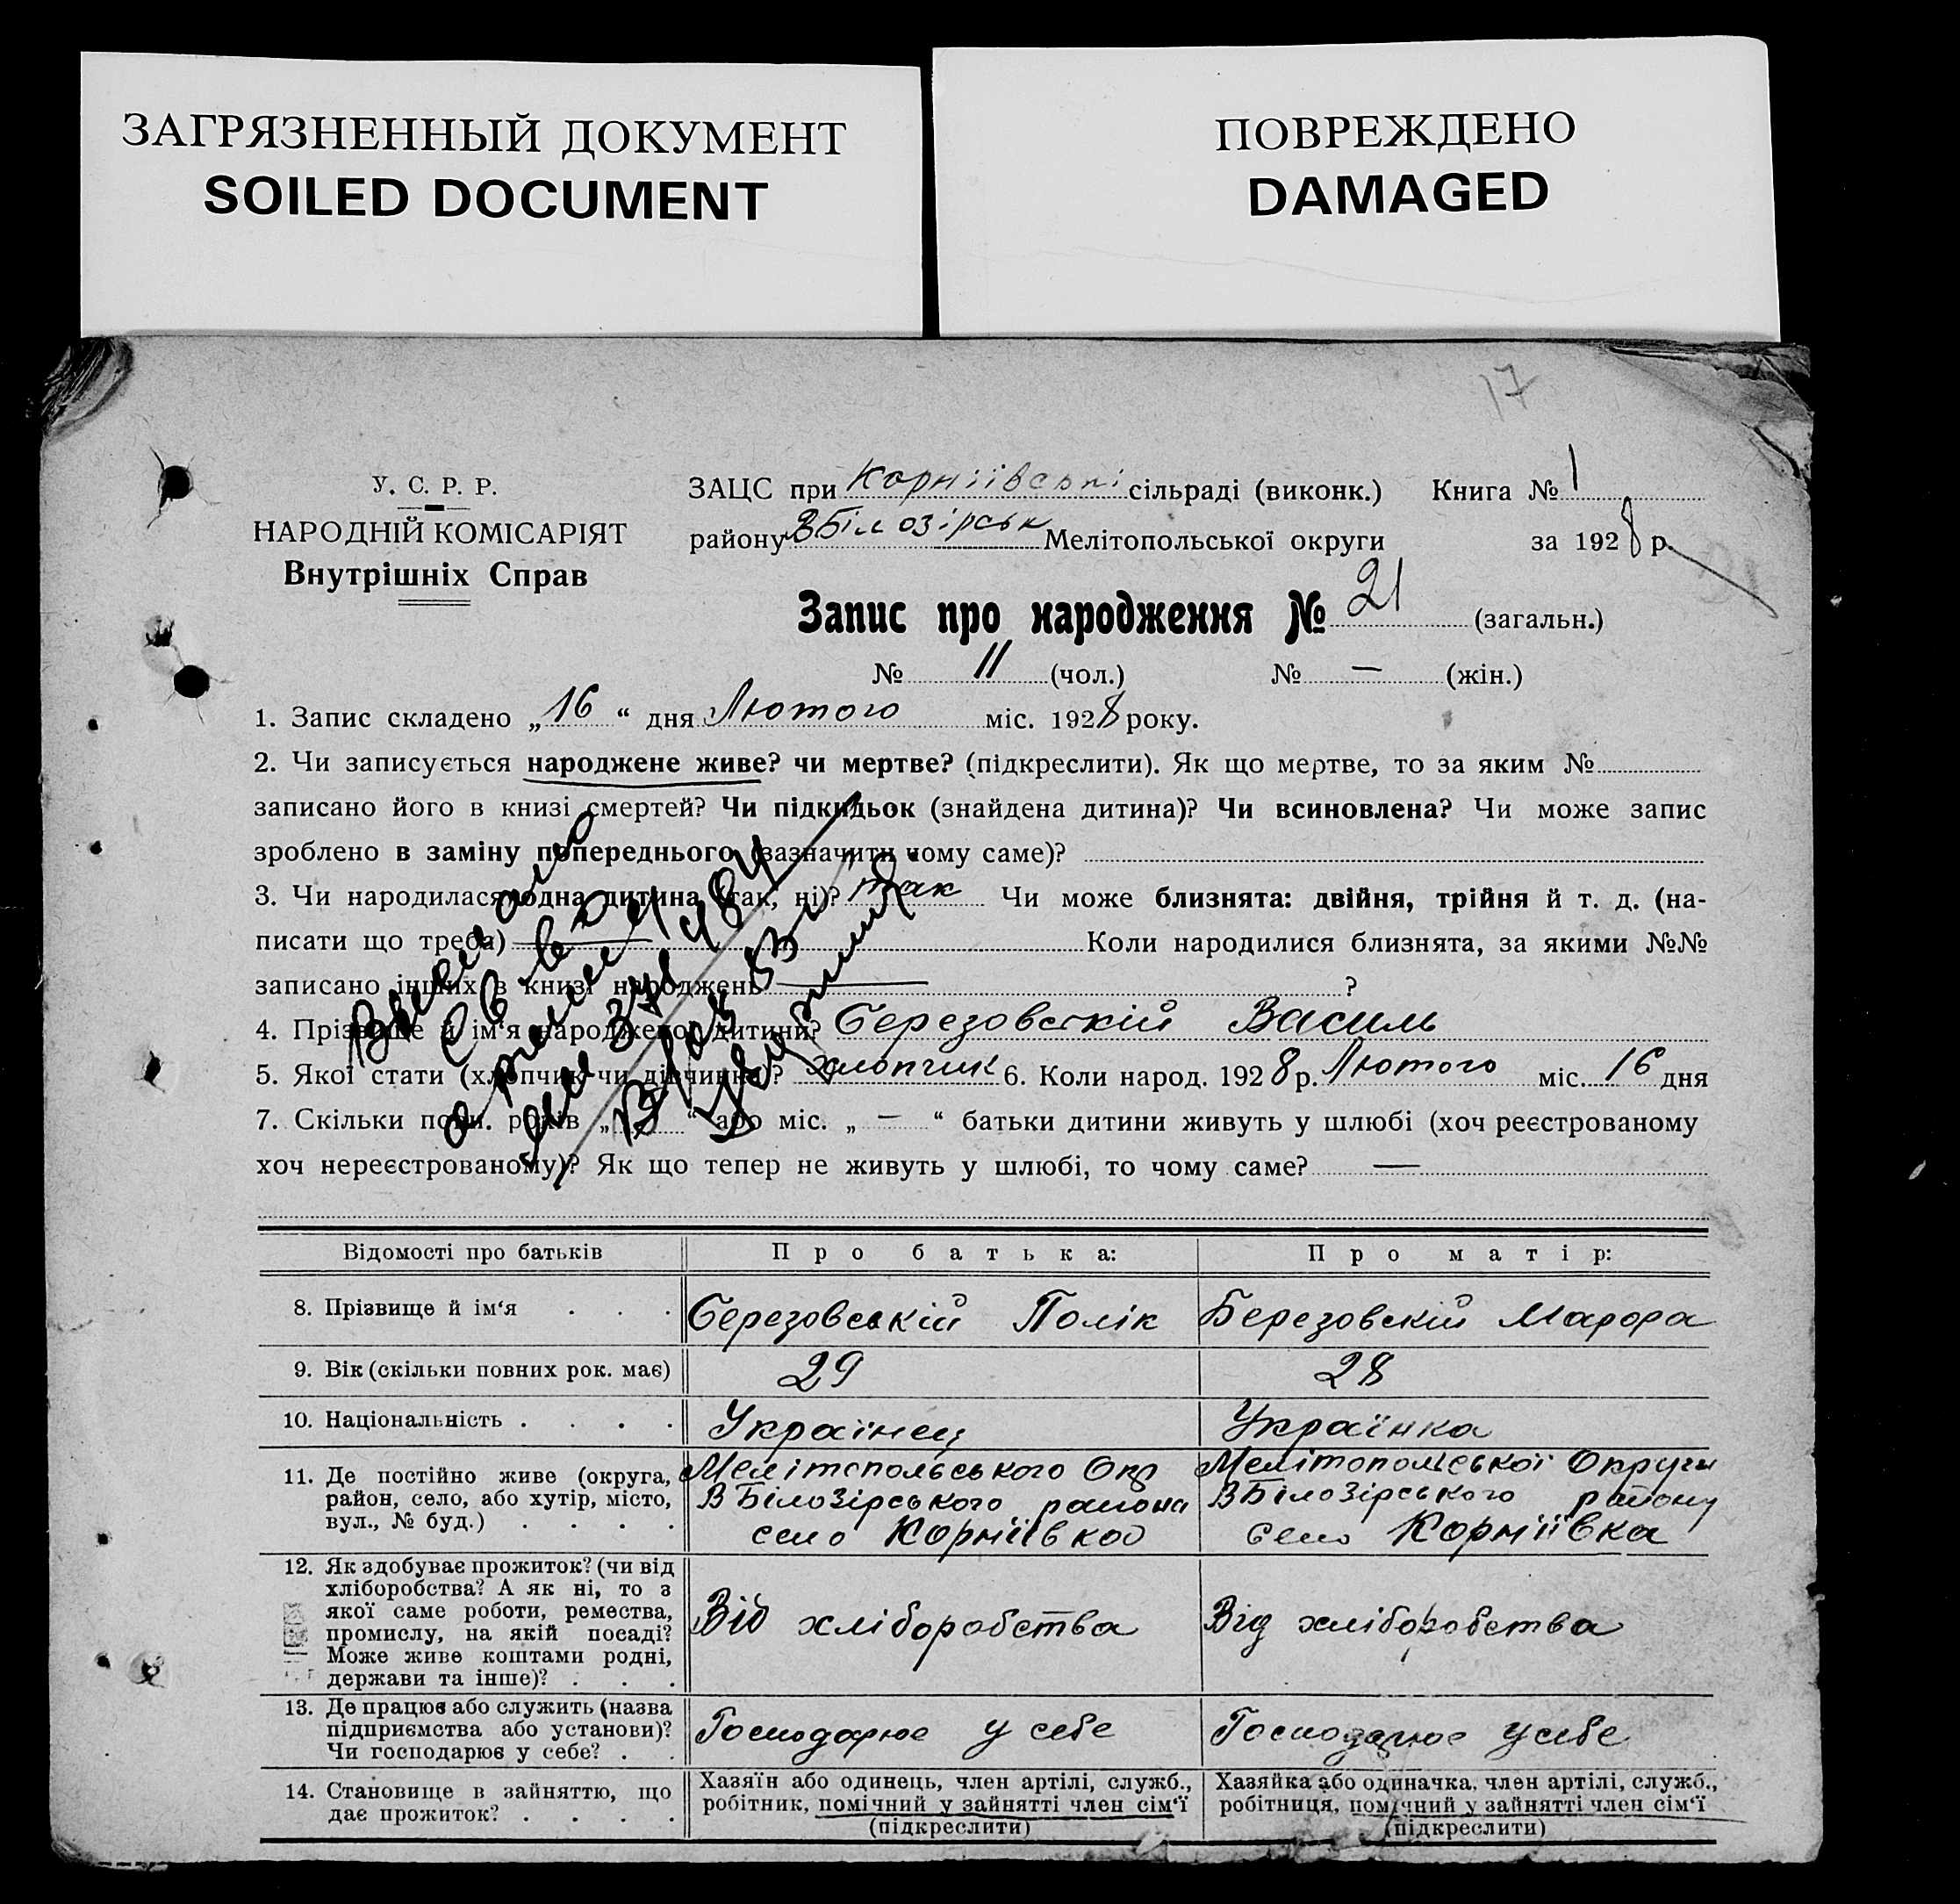 ЗАГРЯЗНЕННЫЙ ДОКУМЕНТ
SOILED DOCUMENT
ПОВРЕЖДЕНО
DAMAGED
17
У. С. Р. Р.
НАРОДНІЙ КОМІСАРІЯТ
Внутрішніх Справ
ЗАЦС при Корніївські сільраді (виконк.) Книга № 1
району ВБілозірськ Мелітопольської округи за 1928 р.
Запис про народження № 21 (загальн.)
№ 11 (чол.) № — (жін.)
1. Запис складено „16“ дня Лютого міс. 1928 року.
2. Чи записується народжене живе? чи мертве? (підкреслити). Як що мертве, то за яким №
записано його в книзі смертей? Чи підкидьок (знайдена дитина)? Чи всиновлена? Чи може запис
зроблено в заміну попереднього (зазначити чому саме)?
3. Чи народилася одна дитина (так, ні)? так Чи може близнята: двійня, трійня й т. д. (на-
писати що треба) — Коли народилися близнята, за якими №№
записано інших в книзі народжень — ?
4. Прізвище й ім‘я народженої дитини? Березовський Василь
5. Якої стати (хлопчик чи дівчинка)? хлопчик 6. Коли народ. 1928 р. Лютого міс. 16 дня
7. Скільки повн. років „ “ або міс. „ — “ батьки дитини живуть у шлюбі (хоч реєстрованому
хоч нереєстрованому)? Як що тепер не живуть у шлюбі, то чому саме? —
Відомості про батьків Про батька: Про матір:
8. Прізвище й ім‘я . . . Березовський Полік Березовскій Марфа
9. Вік (скільки повних рок. має) 29 28
10. Національність . . . . Українец Українка
11. Де постійно живе (округа, район, село, або хутір, місто, вул., № буд.) . . . .
Мелітопольського Окр
ВБілозірського района
село Корніївков
Мелітопольської Округи
ВБілозірського району
село Корніївка
12. Як здобуває прожиток? (чи від
хліборобства? А як ні, то з
якої саме роботи, ремества,
промислу, на якій посаді?
Може живе коштами родні,
держави та інше)? . . .
Від хліборобства Від хліборобства
13. Де працює або служить (назва
підприємства або установи)?
Чи господарює у себе? . .
Господарює у себе Господарює у себе
14. Становище в зайняттю, що
дає прожиток? . . . .
Хазяїн або одинець, член артілі, служб.,
робітник, помічний у зайнятті член сім‘ї
(підкреслити)
Хазяйка або одиначка, член артілі, служб.,
робітниця, помічний у зайнятті член сім‘ї
(підкреслити)